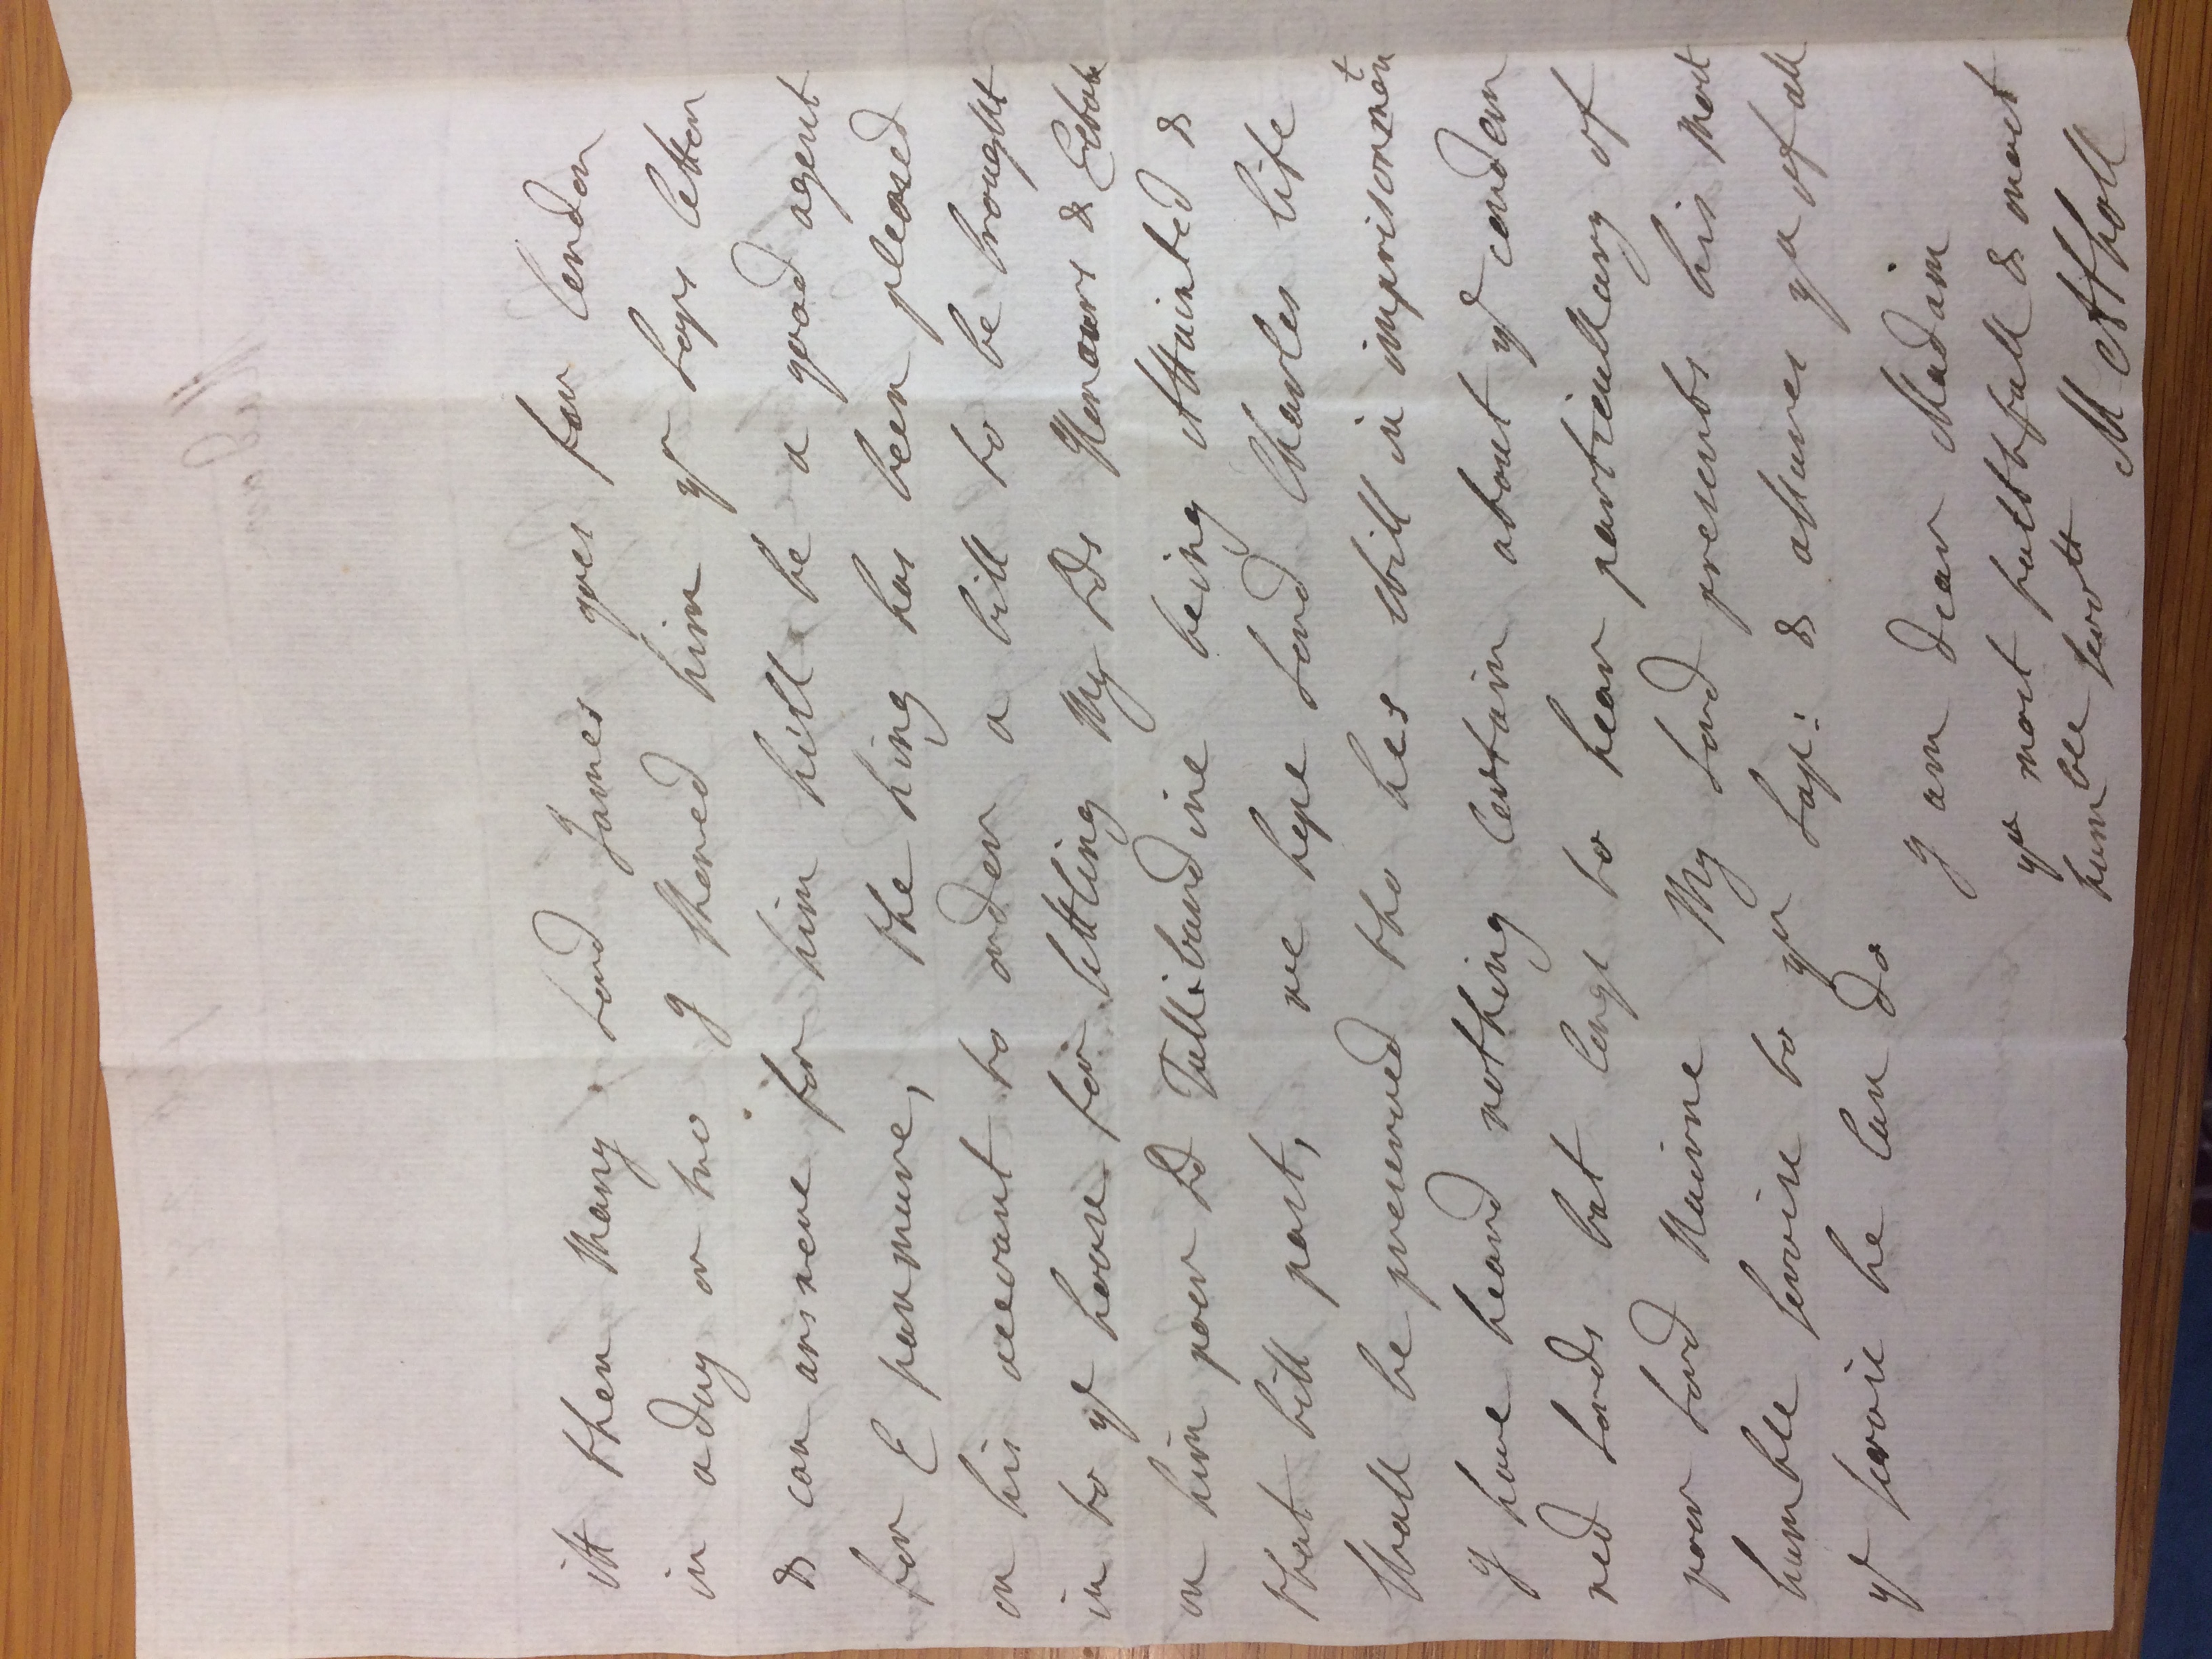 itt then Many Lord James goes for london
in a day or two I shoued him yr Laps letter
& can ansuere for him hill be a good agent
for E panmure, the king has been pleased
on his account to order a bill to be brought
in to ye house for settling My Lds Honours & Estate
on him poor Ld Tullibardine being Attainted &
that bill past, we hope Lord Charles life
shall be preserved tho hes still in imprisonment
I have heard nothing Certain about ye condem
ned Lords but longs to hear particullary of
poor Lord Nairne My Lord presents his most
humble servise to yr Lap: & assures yu of all
ye servise he Can do
I am dear Madam
yr most faithfull & most
humble servtt M Atholl
Madam